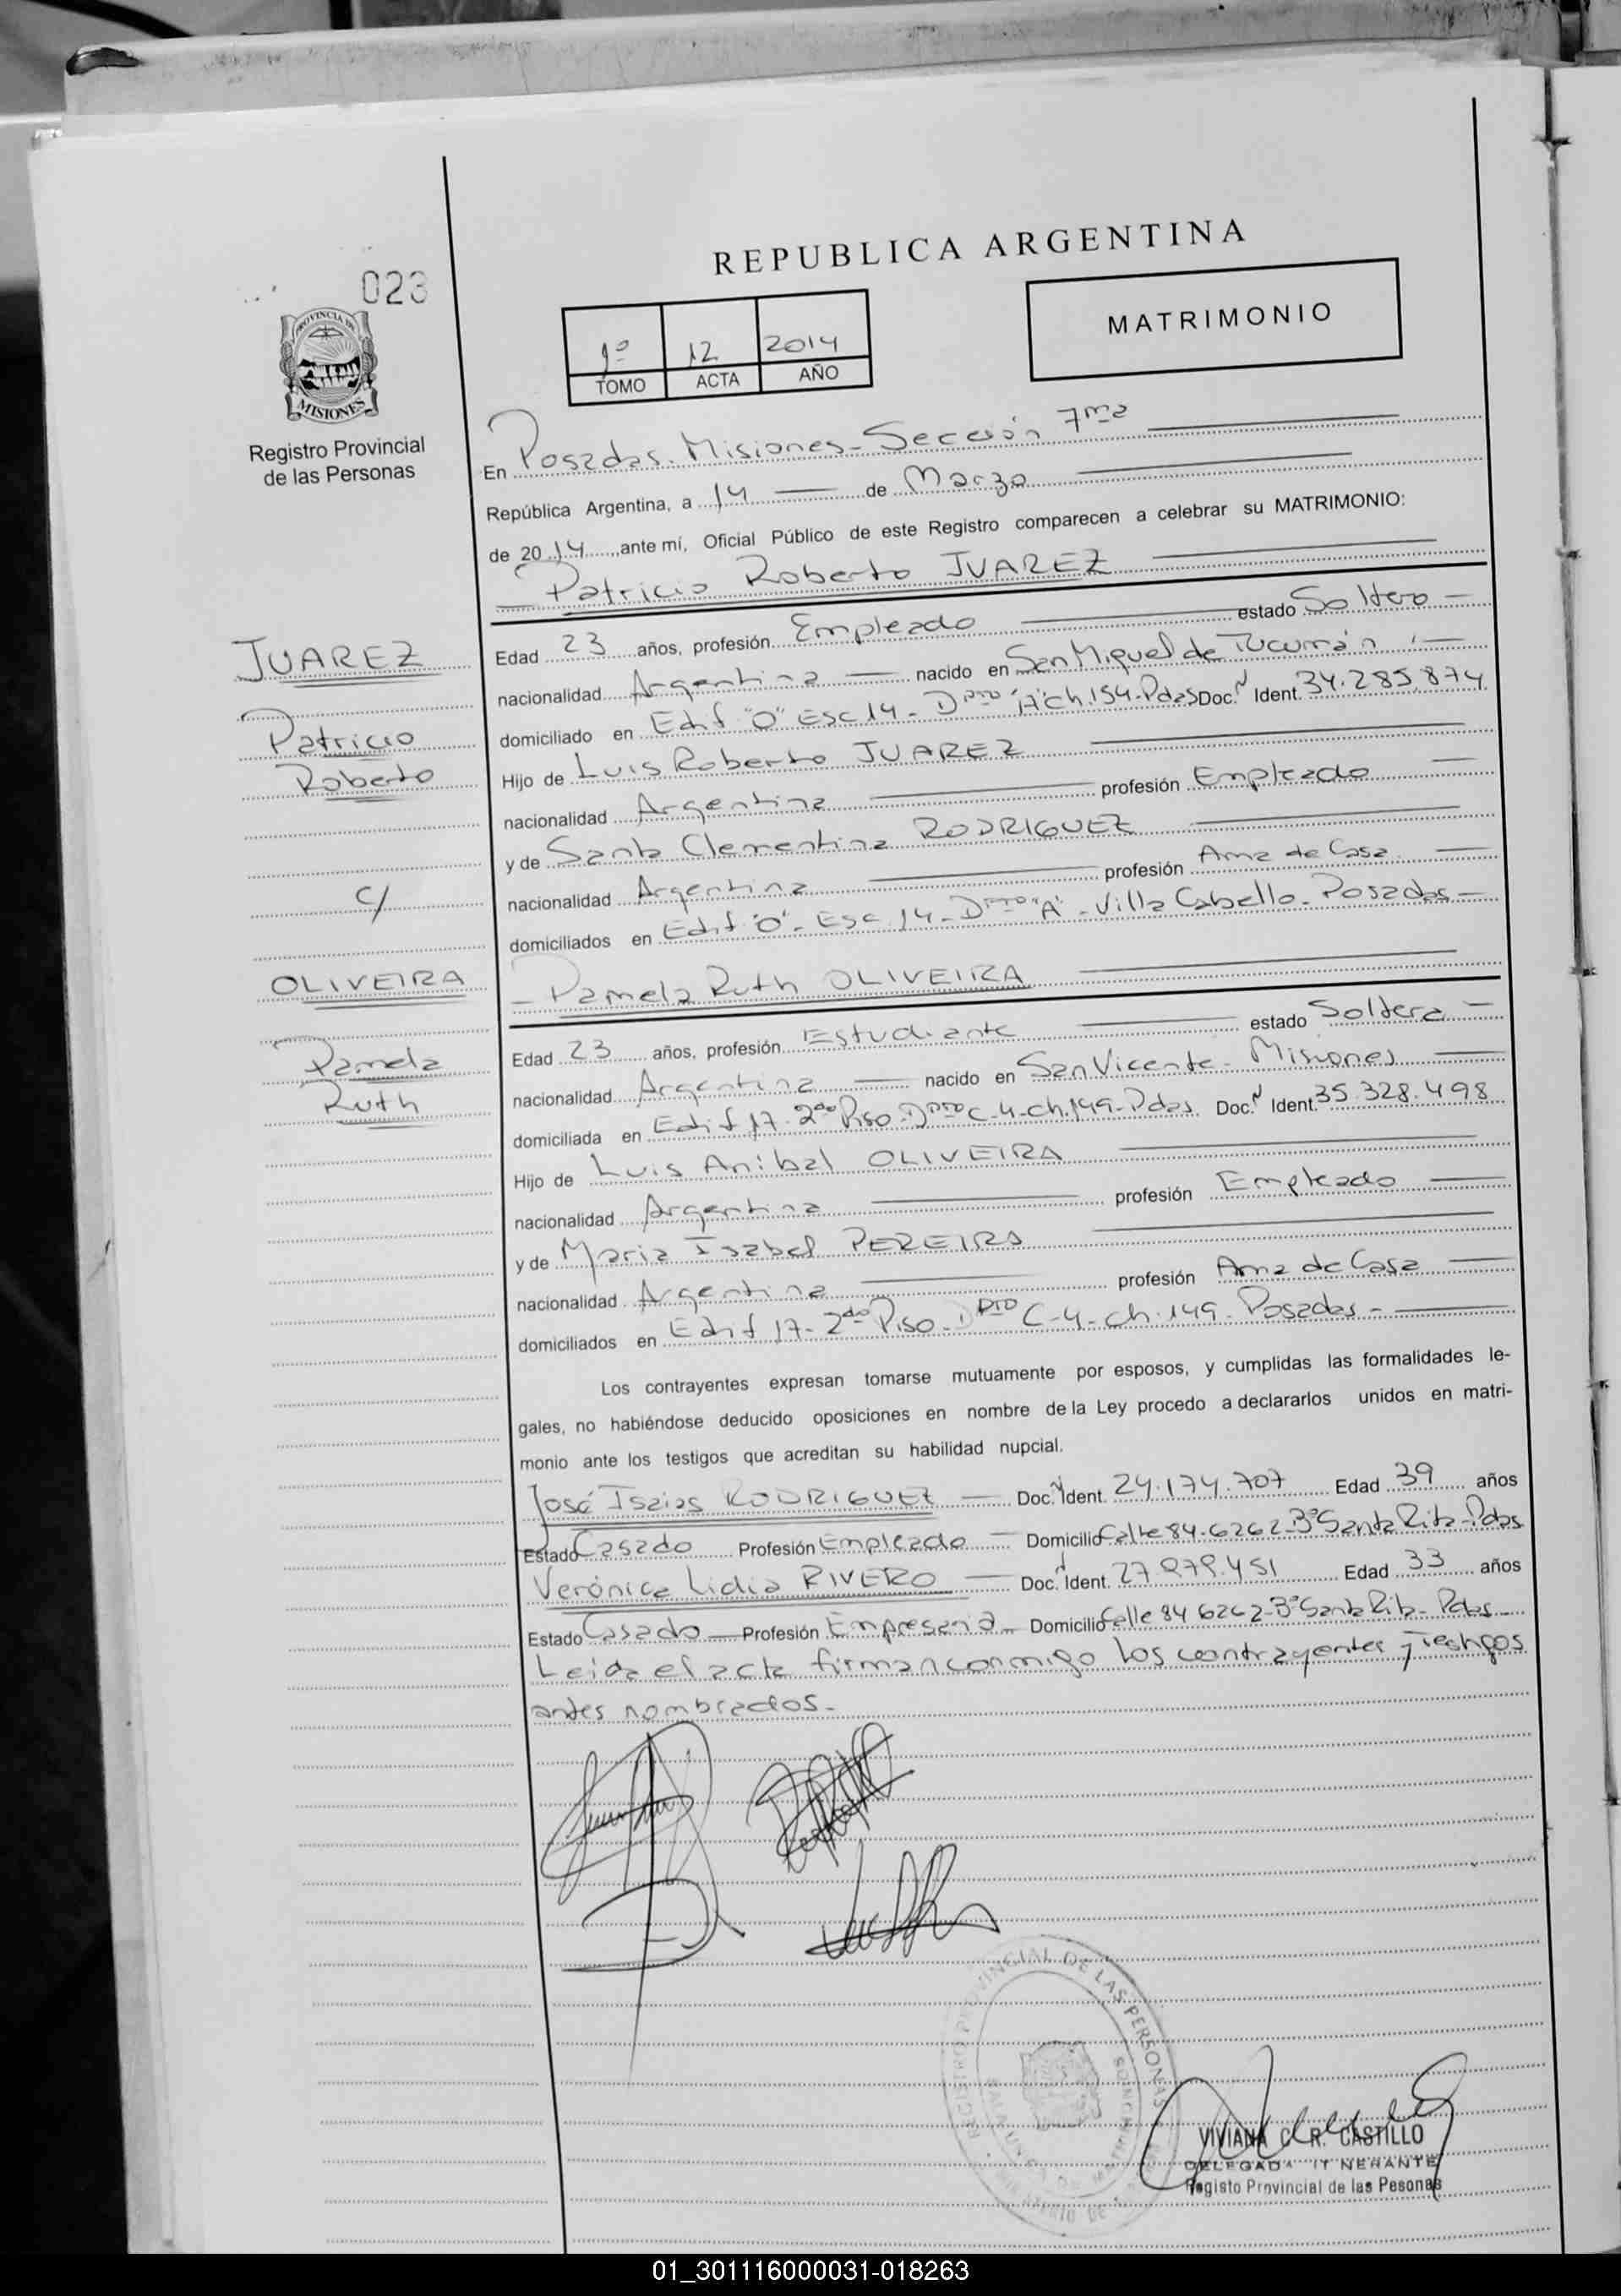 REPUBLICA ARGENTINA
023
PROVINCIA DE
MISIONES
Registro Provincial
de las Personas
1º 12 2014
TOMO ACTA AÑO
MATRIMONIO
En Posadas. Misiones - Sección 7ma
República Argentina, a 14 de Marzo
de 2014, ante mí, Oficial Público de este Registro comparecen a celebrar su MATRIMONIO:
Patricio Roberto JUAREZ
JUAREZ
Patricio
Roberto
c/
OLIVEIRA
Pamela
Ruth
Edad 23 años, profesión Empleado estado Soltero
nacionalidad Argentina nacido en San Miguel de Tucumán
domiciliado en Edif "O" Esc 14 - Dpto "A" ch. 154 - Pdas Doc. N Ident. 34.285.874
Hijo de Luis Roberto JUAREZ
nacionalidad Argentina profesión Empleado
y de Santa Clementina RODRIGUEZ
nacionalidad Argentina profesión Ama de Casa
domiciliados en Edif "O" - Esc 14 - Dpto "A" - Villa Cabello - Posadas -
Pamela Ruth OLIVEIRA
Edad 23 años, profesión Estudiante estado Soltera
nacionalidad Argentina nacido en San Vicente - Misiones
domiciliada en Edif 17 - 2do Piso - Dpto C-4 - ch. 149 - Pdas Doc. N Ident. 35.328.498
Hijo de Luis Anibal OLIVEIRA
nacionalidad Argentina profesión Empleado
y de Maria Isabel PEREIRA
nacionalidad Argentina profesión Ama de Casa
domiciliados en Edif 17 - 2do Piso - Dpto C-4 - ch. 149 - Posadas -
Los contrayentes expresan tomarse mutuamente por esposos, y cumplidas las formalidades le-
gales, no habiéndose deducido oposiciones en nombre de la Ley procedo a declararlos unidos en matri-
monio ante los testigos que acreditan su habilidad nupcial.
José Isaias RODRIGUEZ Doc. N Ident. 24.174.707 Edad 39 años
Estado Casado Profesión Empleado Domicilio Calle 84-6262-Bº Santa Rita-Pdas
Verónica Lidia RIVERO Doc. N Ident. 27.979.451 Edad 33 años
Estado Casado Profesión Empresaria Domicilio Calle 84 6262-Bº Santa Rita - Pdas
Leida el acta firman conmigo los contrayentes y Testigos
antes nombrados.-
PROVINCIAL DE LAS PERSONAS
VIVIANA C. R. CASTILLO
DELEGADA ITINERANTE
Registo Provincial de las Pesonas
01_301116000031-018263